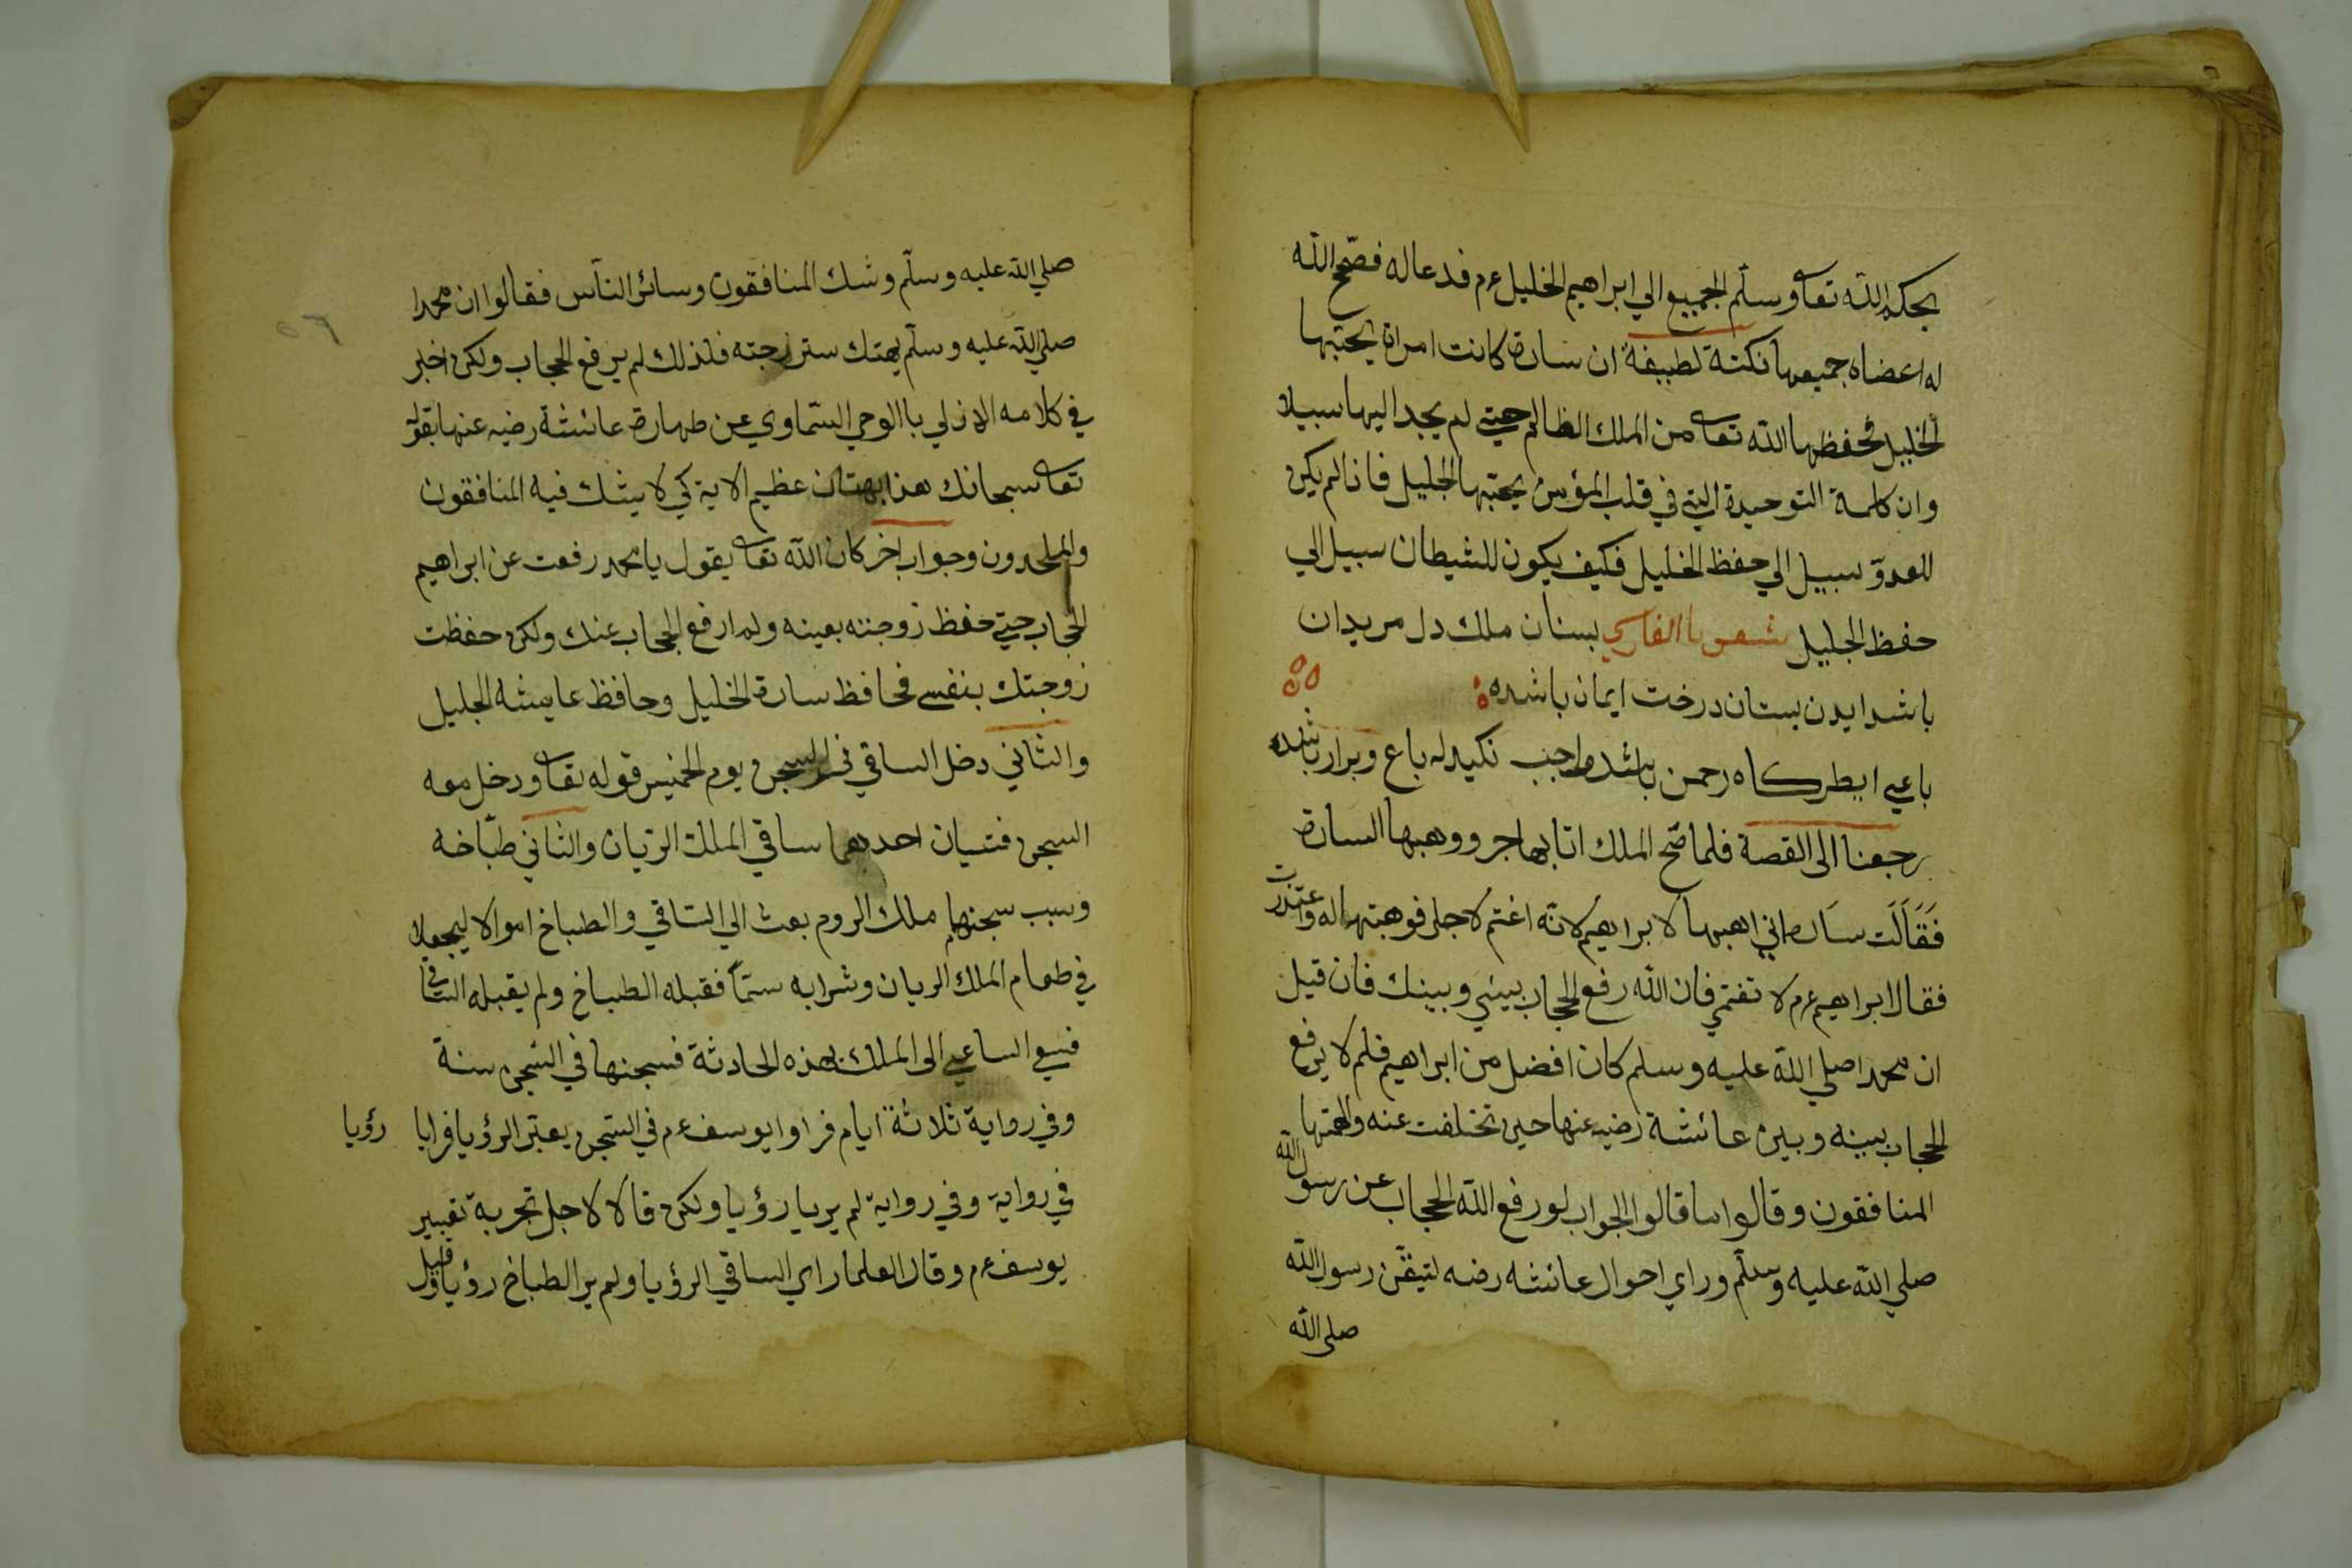 بحكم الله تعا وسلم الجميع الي ابراهيم الخليل عم فدعا له فصّح الله
له اعضاه جميعها نكتة لطيفة ان سارة كانت امراة يحبّها
الخليل فحفظها الله تعا من الملك الظالم حيتي لم يجد اليها سبيلا
وان كلمة التوحيدة التي في قلب المؤمن يحبّها الجليل فاذا لم يكن
للعدوّ سبيل الي حفظ الخليل فكيف يكون للشيطان سبيل الي
حفظ الجليل شعر با الفارسي بستان ملك دل مريدان
باشد ايدن بستان درخت ايمان باشده
باغي ايطركاه رحمن باشد واجب نكيد له باغ وبرار باشده
رجعنا الى القصة فلما صّح الملك اتا بهاجر ووهبها السارة
فقالت سارة اني اهبها لابراهيم لانّه اغتم لاجلي فوهبتها له واعتذرت
فقال ابراهيم عم لا تغتمّي فان الله رفع الحجاب بيني وبينك فان قيل
ان محمدا صلي الله عليه وسلم كان افضل من ابراهيم فلم لا يرفع
الحجاب بينه وبين عائشة رضيه عنها حين تختلفت عنه واتهمتها
المنافقون وقالوا ما قالوا الجواب لو رفع الله الحجاب عن رسول الله
صلي الله عليه وسلّم وراي احوال عائشه رضه لتيقّن رسول الله
صلى الله
صلي الله عليه وسلّم وشك المنافقون وسائر النّاس فقالوا ان محمدا
صلي الله عليه وسلّم يهتك ستر زوجته فلذلك لم يرفع الحجاب ولكن اخبر
في كلامه الازلي باالوحي السّماوي عن طهارة عائشة رضيه عنها بقوله
تعا سبحانك هذا بهتان عظيم الاية كي لا يشك فيه المنافقون
والملحدون وجواب اخر كان الله تعا يقول يا محمد رفعت عن ابراهيم
الحجاب حيتي حفظ زوجته بعينه ولم ارفع الحجاب عنك ولكن حفظت
زوجتك بنفسي فحافظ سارة الخليل وحافظ عايشه الجليل
والثاني دخل الساقي في السجن يوم الخميس قوله تعا ودخل معه
السجن فتيان احدهما ساقي الملك الريان والثاني طبّاخه
وسبب سجنهما ملك الروم بعث الي السّاقي والطباخ اموالا ليجعلا
في طعام الملك الريان وشرابه سمّا فقبله الطباخ ولم يقبله السّاقي
فسعي الساعي الى الملك بهذه الحادثة فسجنهما في السّجن سنة
وفي رواية ثلاثة ايام فراوا يوسف عم في السّجن يعبّر الرؤيا فرايا رؤيا
في رواية وفي رواية لم يريا رؤيا ولكن قالا لاجل تجربة تعبير
يوسف عم وقال العلما راي الساقي الرؤيا ولم ير الطباخ رؤيا وقيل